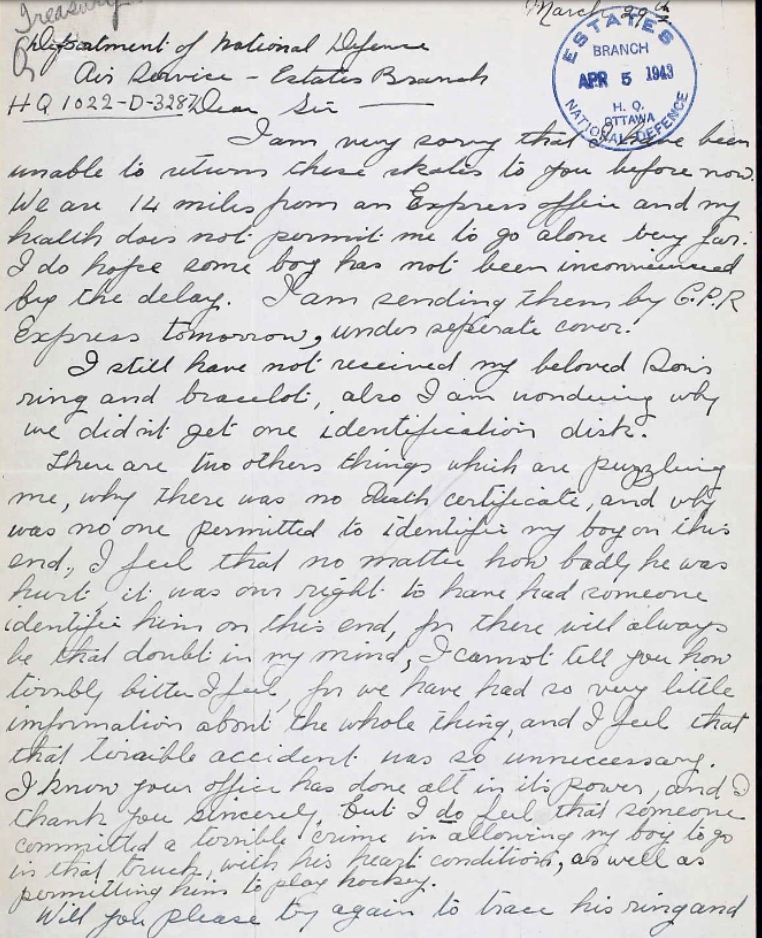 Treasury
March 29th
Department of National Defence
Air Service - Estates Branch
HQ 1022-D-3287 Dear Sir
ESTATES
BRANCH
APR 5 1943
H. Q.
OTTAWA
NATIONAL DEFENCE
I am, very sorry that I have been
unable to return these skates to you before now.
We are 14 miles from an Express office and my
health does not permit me to go alone very far.
I do hope some boy has not been inconvenienced
by the delay. I am sending them by C.P.R
Express tomorrow, under seperate cover.
I still have not received my beloved Son's
ring and bracelet, also I am wondering why
we didn't get one identification disk.
There are two others things which are puzzling
me, why there was no Death certificate, and why
was no one permitted to identifie my boy on this
end, I feel that no matter how badly he was
hurt, it was our right to have had someone
identifie him on this end, for there will always
be that doubt in my mind, I cannot tell you how
terribly bitter I feel, for we have had so very little
information about the whole thing, and I feel that
that terrible accident was so unnecessary.
I know your office has done all in its power, and I
thank you sincerely, but I do feel that someone
committed a terrible crime in allowing my boy to go
in that truck, with his heart condition, as well as
permitting him to play hockey.
Will you please try again to trace his ring and